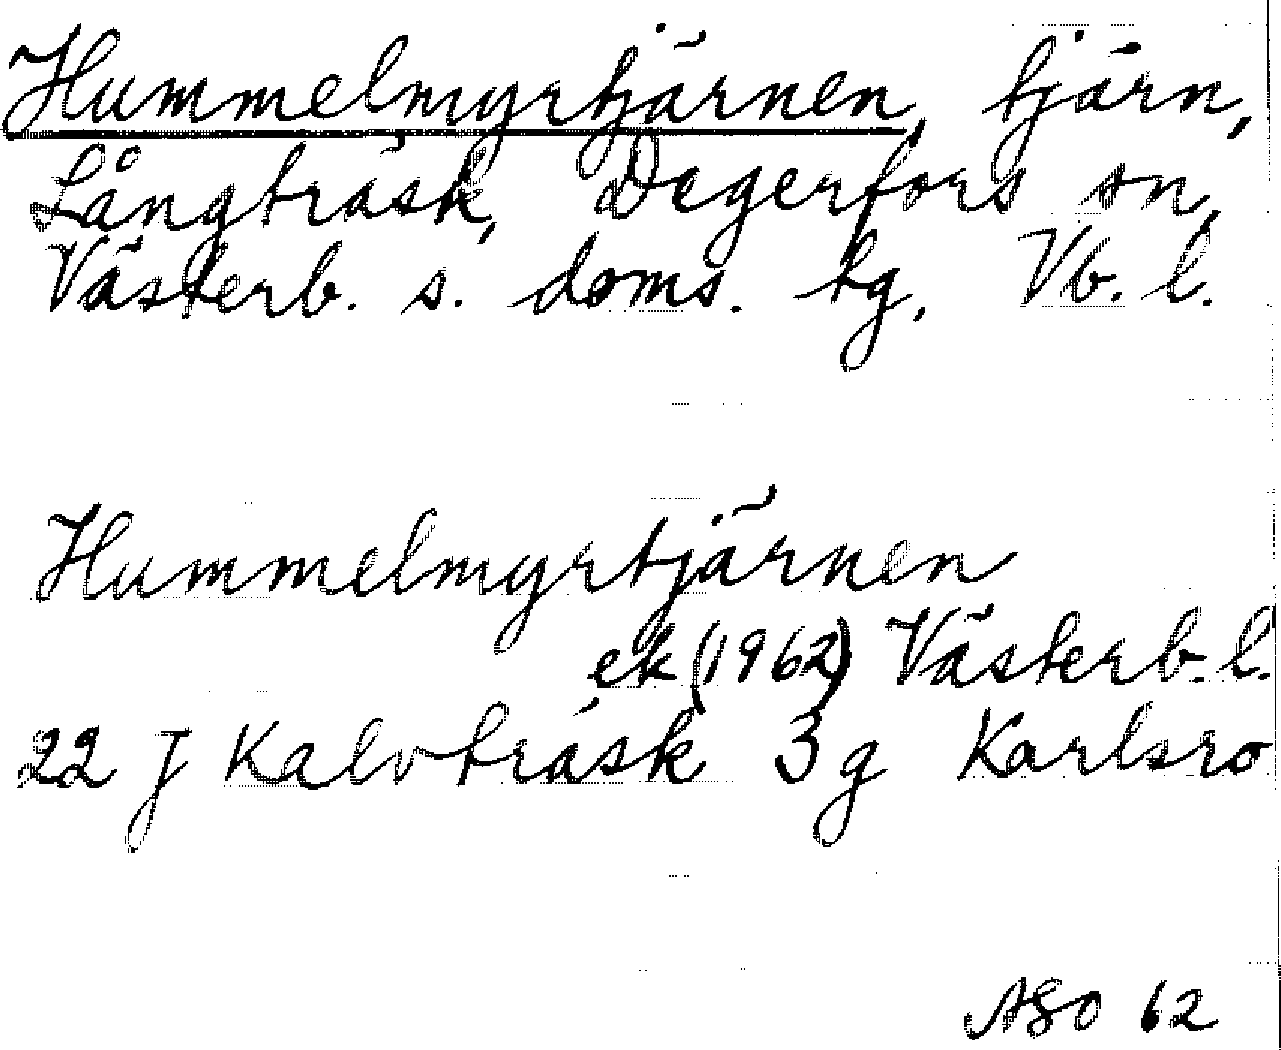 Hummelmyrtjärnen, tjärn,
Långträsk, Degerfors sn,
Västerb. s. doms. tg, Vb. l.
Hummelmyrtjärnen
ek (1962) Västerb. l.
22 J Kalvträsk 3 g Karlsro
ASO 62